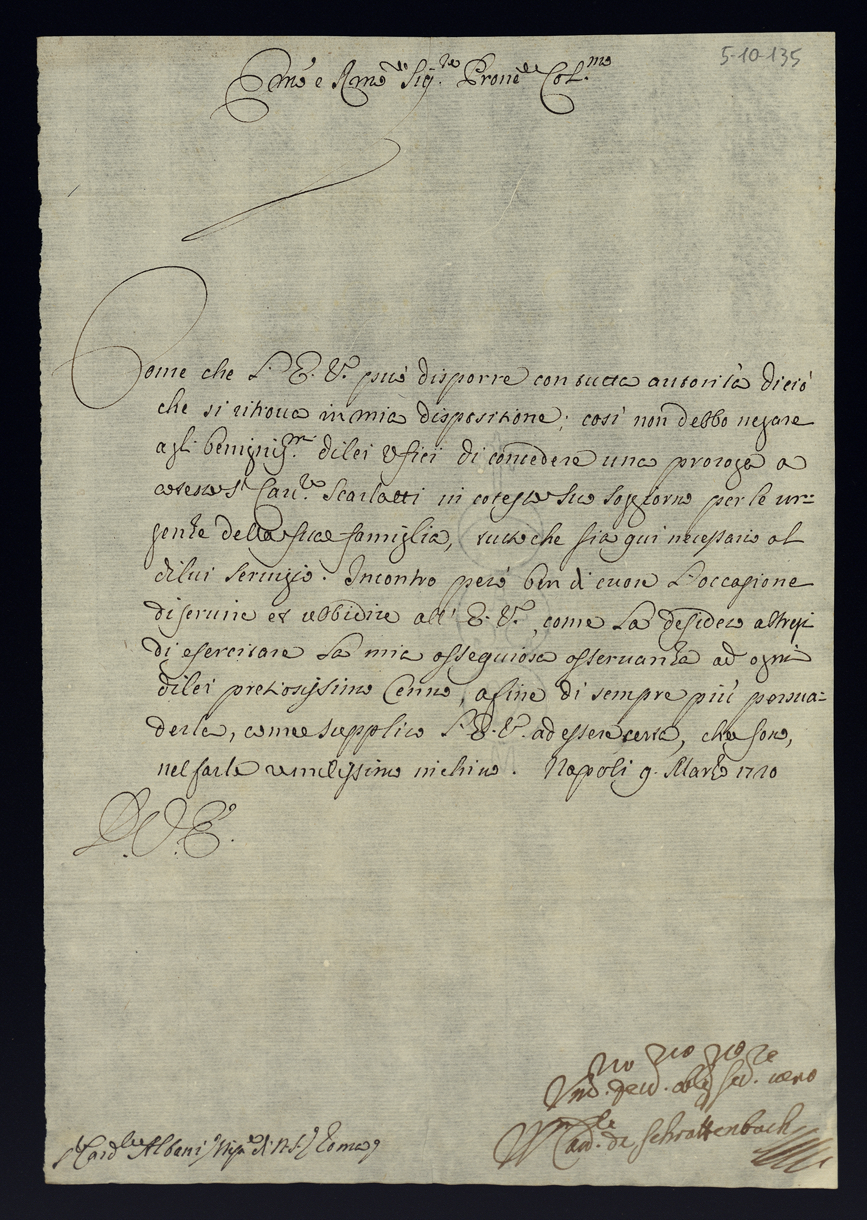 5-10-135
Em.o e Rm.o Sig.re Prone Col.mo
Come che L'E. V. può disporre con tutta autorità di ciò
che si ritroua in mia dispositione; così non debbo negare
agli benigniss.mi di lei vfici di concedere una proroga a
cotesto S.r Cau.re Scarlatti in cotesto suo soggiorno per le ur=
genze della sua famiglia, tutto che sia qui necessario al
di lui seruizio. Incontro però ben di cuore l'occasione
di seruire et vbbidire all' E. V., come la desidero altresì
di esercitare la mia ossequiosa osseruanza ad ogni
di lei pretiosissimo Cenno, a fine di sempre più persua=
derla, come supplico L'E. V. ad essere certa, che sono,
nel farle vmilissimo inchino. Napoli 9. Marzo 1720
D. V. E.
Vmo. deuo. oblig seru. vero
W Card.le de Schrattenbach
S.r Card.le Albani Roma